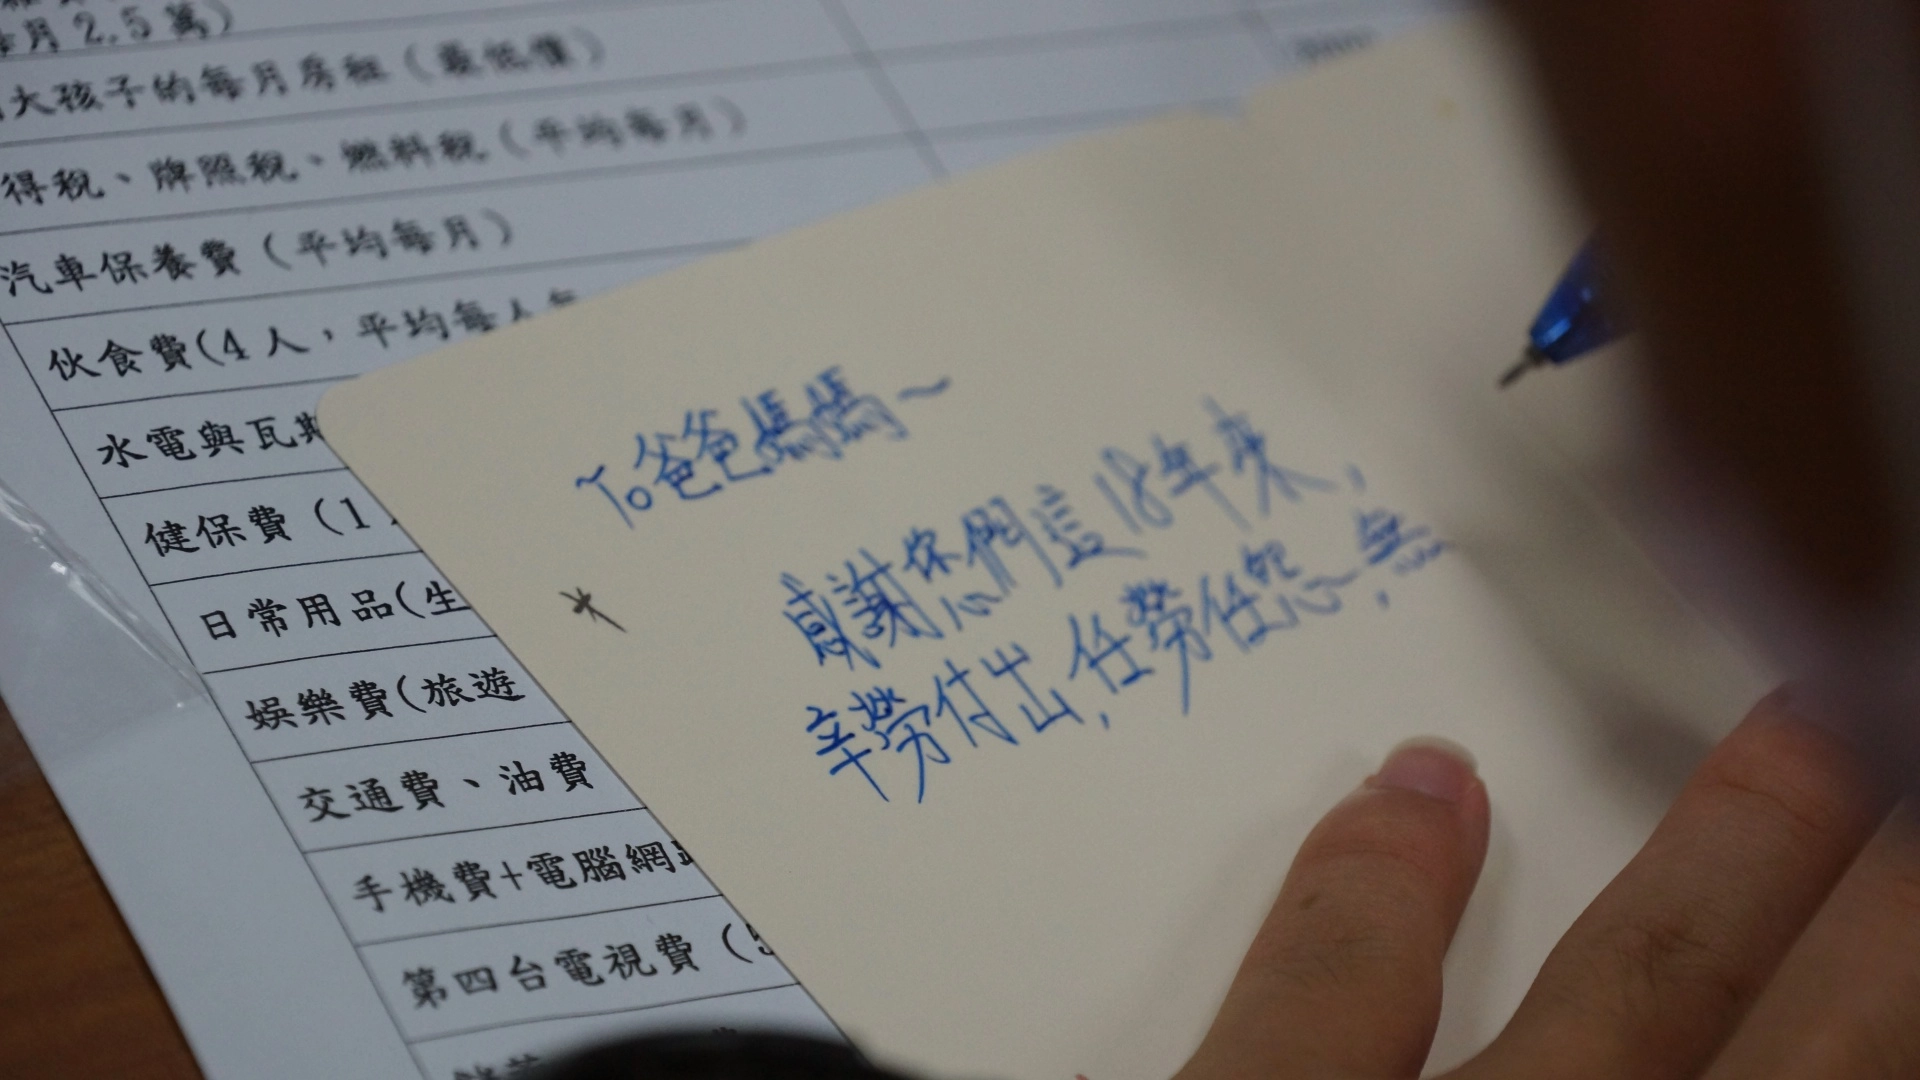 月2.5萬）
大孩子的每月房租（最低價）
得稅、牌照稅、燃料稅（平均每月）
汽車保養費（平均每月）
伙食費(4人，平均每人每
水電與瓦斯
健保費（1人
日常用品(生
娛樂費(旅遊
交通費、油費
手機費+電腦網路
第四台電視費（5
To爸爸媽媽~
感謝您們這18年來，
辛勞付出，任勞任怨，無